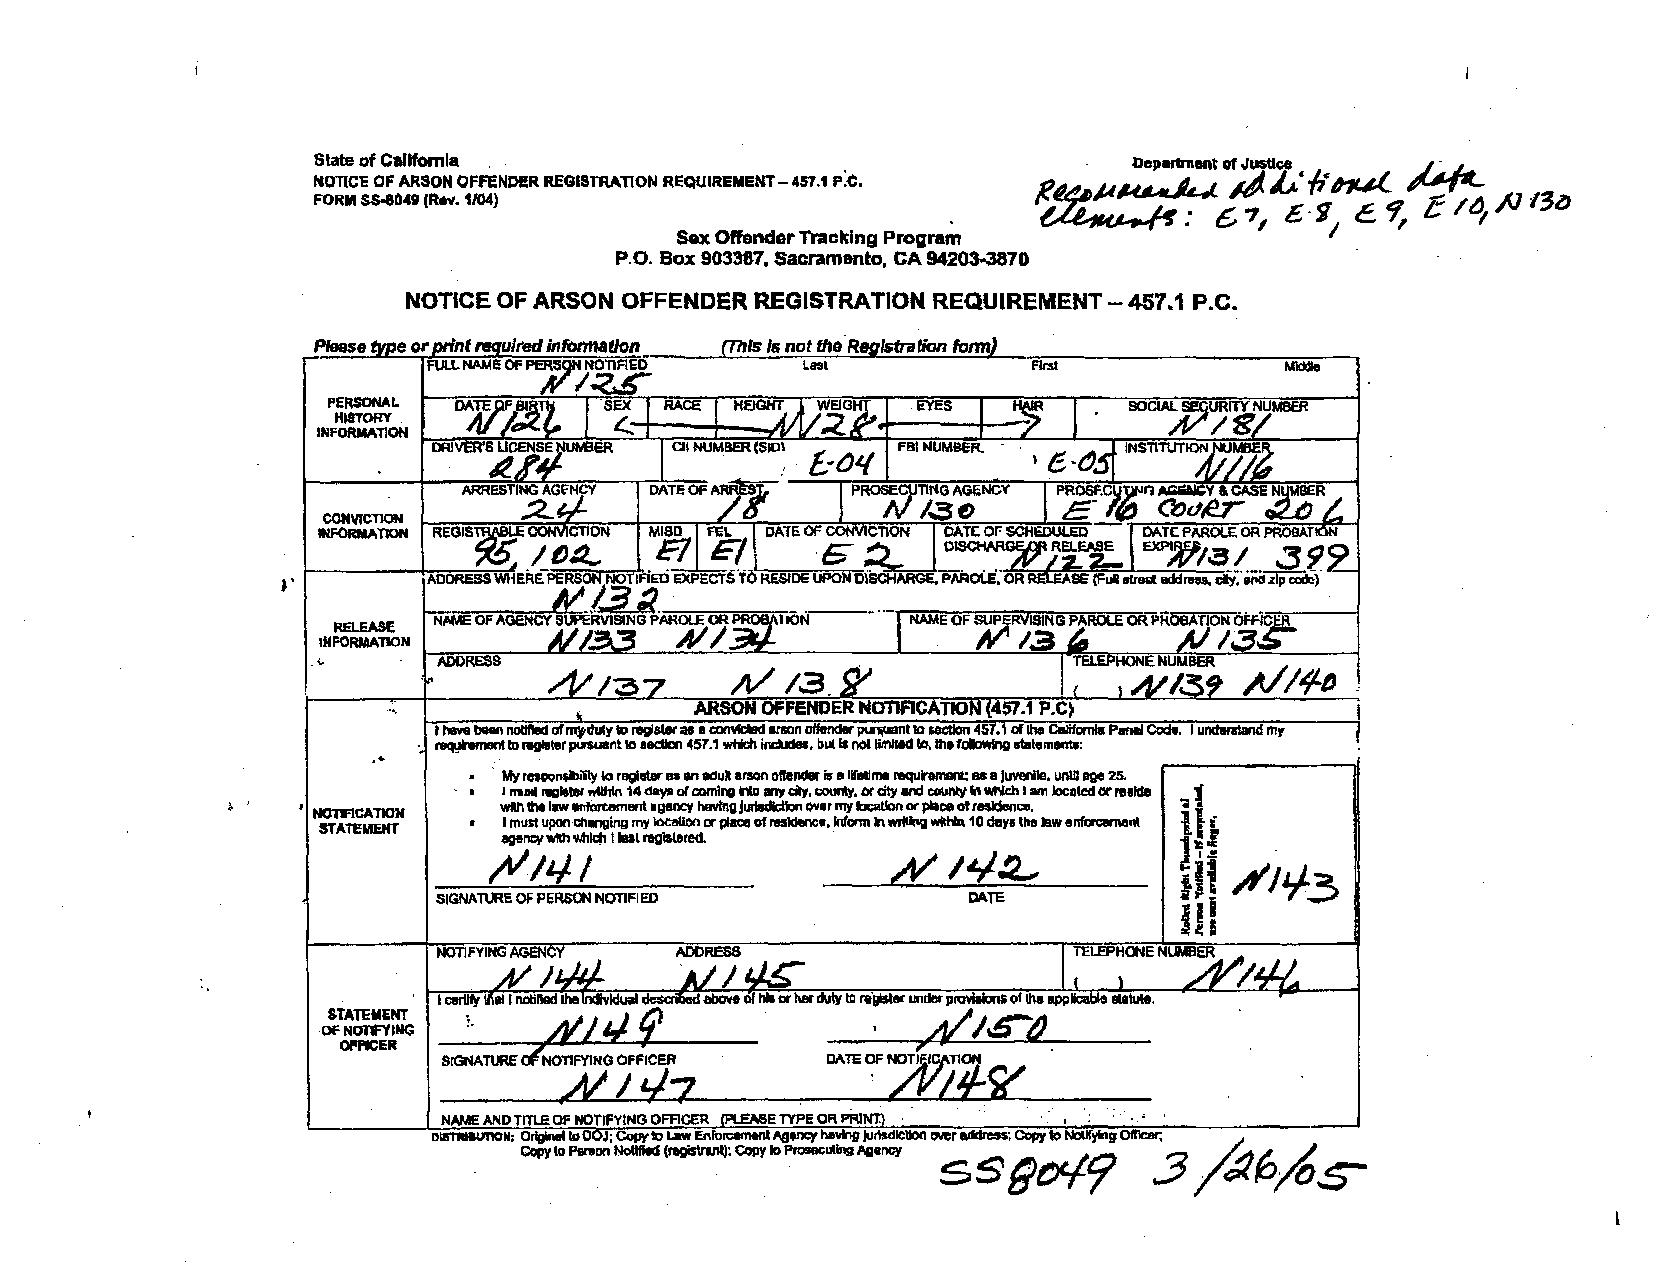 State of California
Department of Justice
NOTICE OF ARSON OFFENDER REGISTRATION REQUIREMENT – 457.1 P.C.
FORM SS-8049 (Rev. 1/04)
Recommended additional data
elements: E7, E8, E9, E10, N130
Sex Offender Tracking Program
P.O. Box 903387, Sacramento, CA 94203-3870
NOTICE OF ARSON OFFENDER REGISTRATION REQUIREMENT – 457.1 P.C.
Please type or print required information (This is not the Registration form)
FULL NAME OF PERSON NOTIFIED Last First Middle
N125
PERSONAL
HISTORY
INFORMATION
DATE OF BIRTH SEX RACE HEIGHT WEIGHT EYES HAIR SOCIAL SECURITY NUMBER
N126 N128 N181
DRIVER'S LICENSE NUMBER CII NUMBER (SID) FBI NUMBER INSTITUTION NUMBER
284 E-04 E-05 N116
CONVICTION
INFORMATION
ARRESTING AGENCY DATE OF ARREST PROSECUTING AGENCY PROSECUTING AGENCY & CASE NUMBER
24 18 N130 E16 COURT 206
REGISTRABLE CONVICTION MISD FEL DATE OF CONVICTION DATE OF SCHEDULED DISCHARGE OR RELEASE DATE PAROLE OR PROBATION EXPIRES
95, 102 E1 E1 E2 N122 N131 399
RELEASE
INFORMATION
ADDRESS WHERE PERSON NOTIFIED EXPECTS TO RESIDE UPON DISCHARGE, PAROLE, OR RELEASE (Full street address, city, and zip code)
N132
NAME OF AGENCY SUPERVISING PAROLE OR PROBATION NAME OF SUPERVISING PAROLE OR PROBATION OFFICER
N133 N134 N136 N135
ADDRESS TELEPHONE NUMBER
N137 N138 ( ) N139 N140
ARSON OFFENDER NOTIFICATION (457.1 P.C)
NOTIFICATION
STATEMENT
I have been notified of my duty to register as a convicted arson offender pursuant to section 457.1 of the California Penal Code. I understand my
requirement to register pursuant to section 457.1 which includes, but is not limited to, the following statements:
• My responsibility to register as an adult arson offender is a lifetime requirement; as a juvenile, until age 25.
• I must register within 14 days of coming into any city, county, or city and county in which I am located or reside
with the law enforcement agency having jurisdiction over my location or place of residence.
• I must upon changing my location or place of residence, inform in writing within 10 days the law enforcement
agency with which I last registered.
N141 N142
SIGNATURE OF PERSON NOTIFIED DATE
Rolled Right Thumbprint of
Person Notified – If amputated,
use next available finger.
N143
STATEMENT
OF NOTIFYING
OFFICER
NOTIFYING AGENCY ADDRESS TELEPHONE NUMBER
N144 N145 ( ) N146
I certify that I notified the individual described above of his or her duty to register under provisions of the applicable statute.
N149 N150
SIGNATURE OF NOTIFYING OFFICER DATE OF NOTIFICATION
N147 N148
NAME AND TITLE OF NOTIFYING OFFICER (PLEASE TYPE OR PRINT)
DISTRIBUTION: Original to DOJ; Copy to Law Enforcement Agency having jurisdiction over address; Copy to Notifying Officer;
Copy to Person Notified (registrant); Copy to Prosecuting Agency
SS8049 3/26/05